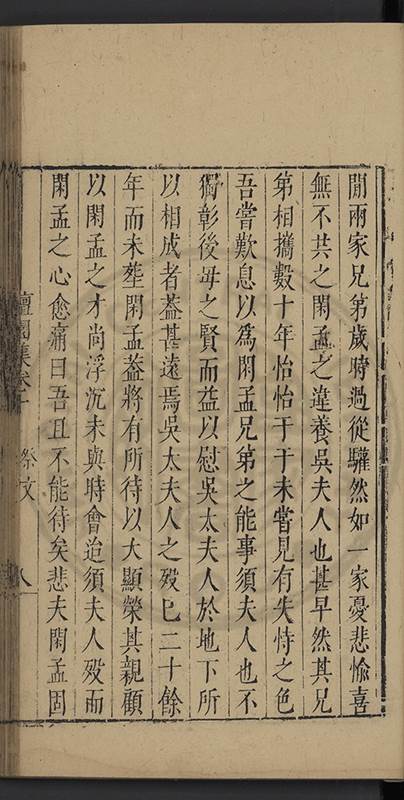 間兩家兄弟歲時過從驩然如一家憂悲愉喜
無不共之閑孟之違養吳夫人也甚早然其兄
弟相攜數十年怡怡于于未嘗見有失恃之色
吾嘗歎息以爲閑孟兄弟之能事須夫人也不
獨彰後母之賢而益以慰吳太夫人於地下所
以相成者葢甚遠焉吳太夫人之歿已二十餘
年而未塟閑孟葢將有所待以大顯榮其親顧
以閑孟之才尚浮沉未與時會迨須夫人歿而
閑孟之心愈痛曰吾且不能待矣悲夫閑孟固
檀園集卷十 祭文 八